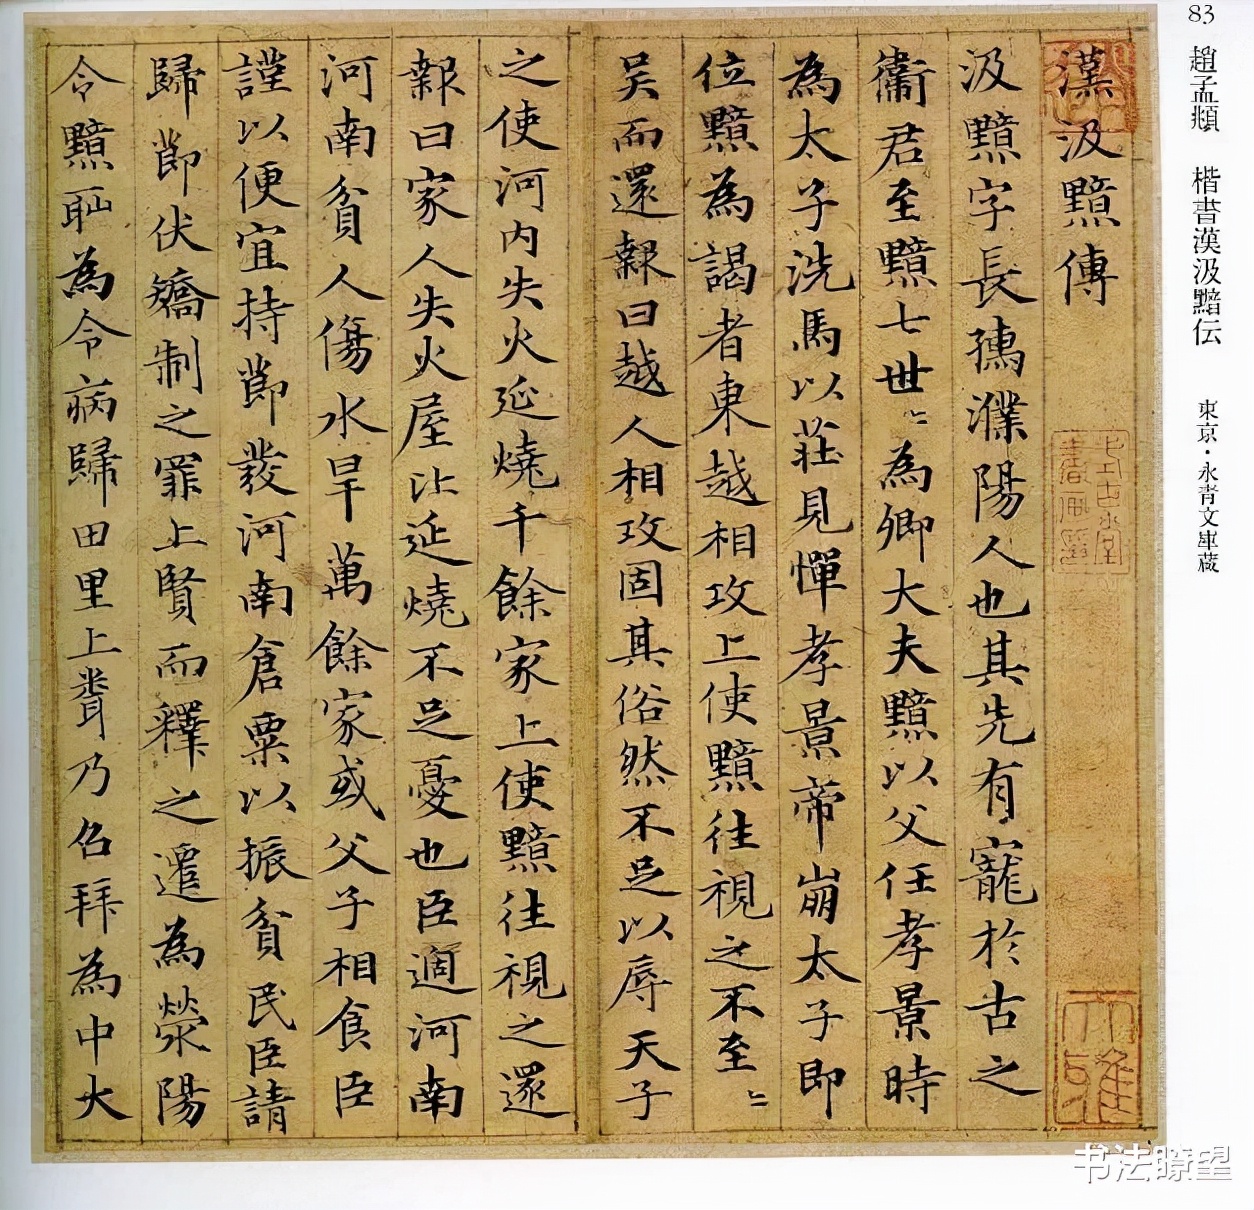 83 趙孟頫 楷書漢汲黯伝 東京・永青文庫蔵
漢汲黯傳
汲黯字長孺濮陽人也其先有寵於古之
衛君至黯七世〻為卿大夫黯以父任孝景時
為太子洗馬以莊見憚孝景帝崩太子即
位黯為謁者東越相攻上使黯往視之不至〻
吳而還報曰越人相攻固其俗然不足以辱天子
之使河內失火延燒千餘家上使黯往視之還
報曰家人失火屋比延燒不足憂也臣適河南
河南貧人傷水旱萬餘家或父子相食臣
謹以便宜持節發河南倉粟以振貧民臣請
歸節伏矯制之罪上賢而釋之遷為滎陽
令黯恥為令病歸田里上聞乃召拜為中大
大雅
书法瞭望